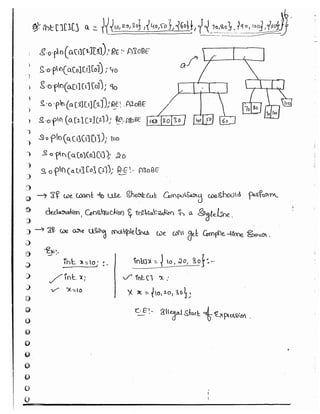 int[][][] a = {{{10,20,30},{40,50},{60}},{{70,80},{90,100},{110}}};
a
S.o.pln(a[1][2][3]); RE:- AIOBE
S.o.pln(a[0][1][0]); 40
S.o.pln(a[1][1][0]); 90
S.o.pln(a[3][1][2]); RE:- AIOBE
S.o.pln(a[2][2][2]); RE:- AIOBE
10 20 30
40 50
60
70 80
S.o.pln(a[1][1][1]); 100
S.o.pln(a[0][0][1]); 20
S.o.pln(a[1][0][2]); RE:- AIOBE
→ If we want to use Shortcut Compulsory we should perform
declaration, Construction & Initialization in a Single line.
→ If we are using multiple lines we will get Compile-time Error.
Ex:-
int x=10; :-
int x;
x=10
int[] x = {10,20,30}; :-
int[] x;
X x = {10,20,30};
C.E:- Illegal Start of Expression.